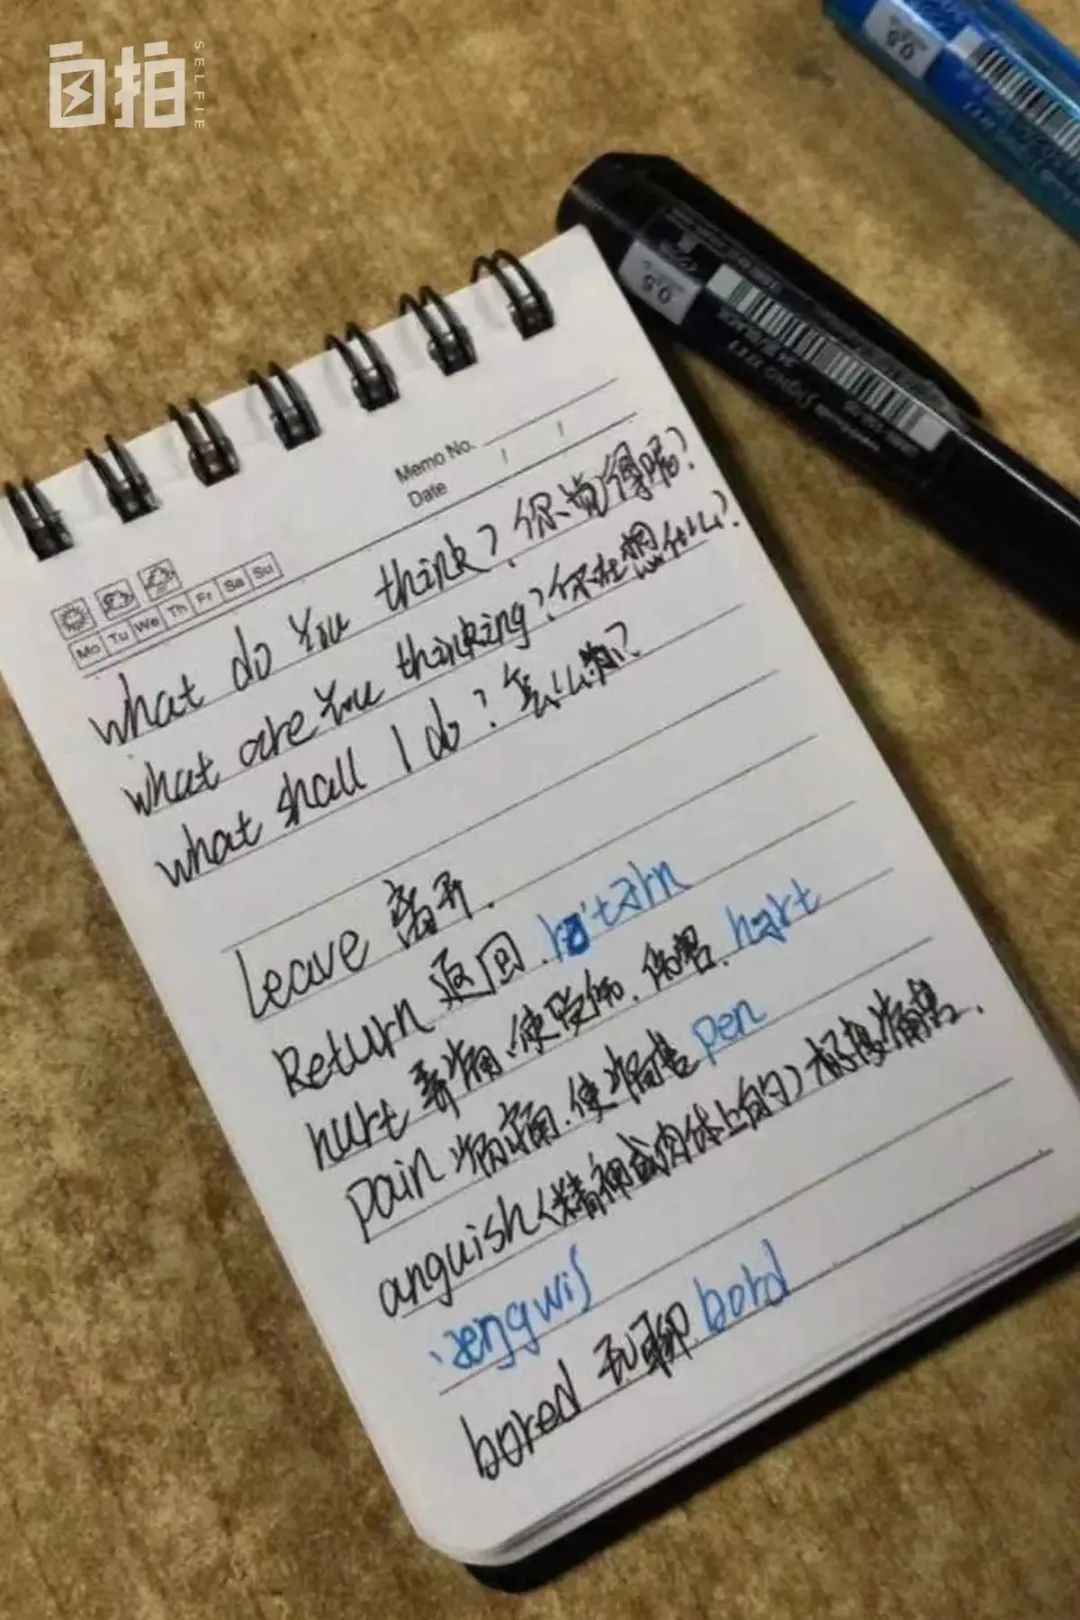 自拍
SELFIE
0.5
0.5
Memo No.
Date
Mo Tu We Th Fr Sa Su
What do You think? 你觉得呢?
What are You thinking? 你在想什么?
What shall I do? 怎么办?
Leave 离开.
Return 返回. rɪ'tɜrn
hurt 弄痛.使受伤.伤害. hɜrt
pain 疼痛.使痛苦 pen
anguish (精神或肉体上的) 极度痛苦.
'æŋgwiʃ
bored 无聊 bord